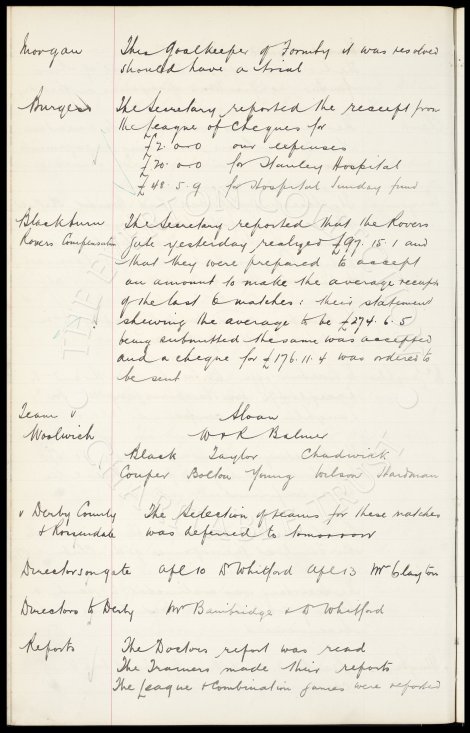 Morgan The Goalkeeper of Formby it was resolved
should have a trial
Burgess The Secretary reported the receipt from
the League of Cheques for
£2.0.0 our expenses
£20.0.0 for Stanley Hospital
£48.5.9 for Hospital Sunday fund
Blackburn The Secretary reported that the Rovers
Rovers Compensation gate yesterday realized £97.15.1 and
that they were prepared to accept
an amount to make the average receipts
of the last 6 matches: their statement
shewing the average to be £274.6.5
being submitted the same was accepted
and a cheque for £176.11.4 was ordered to
be sent
Team v Sloan
Woolwich W & R Balmer
Black Taylor Chadwick
Couper Bolton Young Wilson Hardman
v Derby County The Selection of teams for these matches
& Rossendale was deferred to tomorrow
Directors on gate Apl 10 Dr Whitford Apl 13 Mr Clayton
Directors to Derby Mr Bainbridge & Dr Whitford
Reports The Doctors report was read
The Trainers made their reports
The League & Combination games were reported
THE EVERTON CO
CHARITABLE TRUST